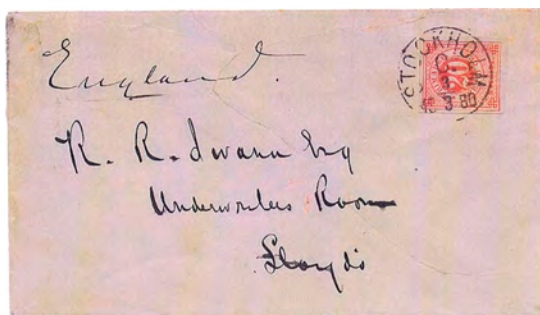 England.
STOCKHOLM
20
3 80
R. R. Swann Esq
Underwriters Room
Lloyds